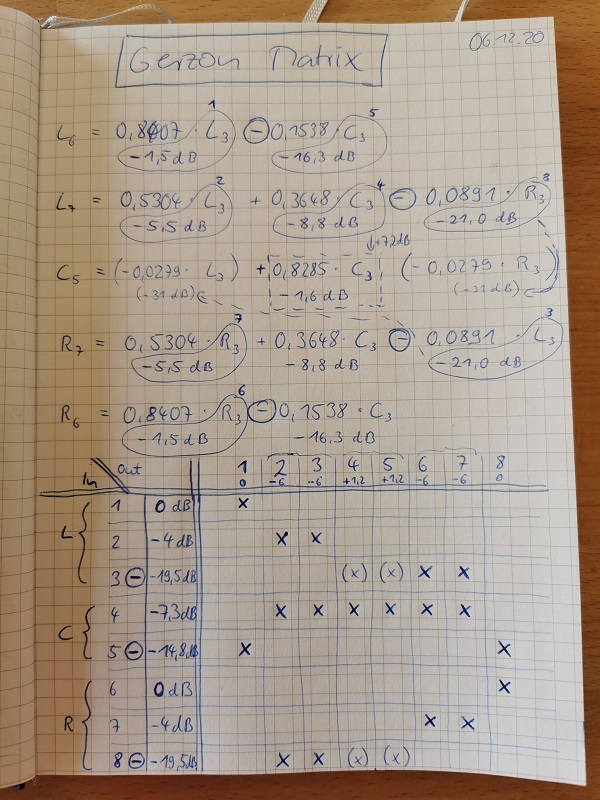 06.12.20
Gerzon Matrix
L₆ = 0,8407 · L₃ ¹ ⊖ 0,1538 · C₃ ⁵
-1,5 dB -16,3 dB
L₇ = 0,5304 · L₃ ² + 0,3648 · C₃ ⁴ ⊖ 0,0891 · R₃ ⁸
-5,5 dB -8,8 dB -21,0 dB
↓+7,2dB
C₅ = (-0,0279 · L₃) + 0,8285 · C₃ (-0,0279 · R₃)
(-31 dB) -1,6 dB (-31 dB)
R₇ = 0,5304 · R₃ ⁷ + 0,3648 · C₃ ⊖ 0,0891 · L₃ ³
-5,5 dB -8,8 dB -21,0 dB
R₆ = 0,8407 · R₃ ⁶ ⊖ 0,1538 · C₃
-1,5 dB -16,3 dB
In Out 1 2 3 4 5 6 7 8
0 -6 -6 +1,2 +1,2 -6 -6 0
L 1 0 dB x
2 -4dB x x
3 ⊖ -19,5dB (x) (x) x x
C 4 -7,3dB x x x x x x
5 ⊖ -14,8dB x x
R 6 0 dB x
7 -4dB x x
8 ⊖ -19,5dB x x (x) (x)